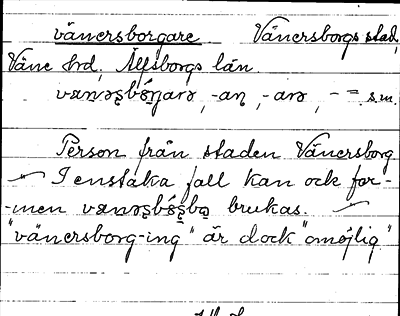 vänersborgare Vänersborgs stad,
Väne hrd, Älfsborgs län.
-an, -arə, - = s.m.
Person från staden Vänersborg
I enstaka fall kan ock for-
-men brukas.
"vänersborg-ing" är dock "omöjlig"